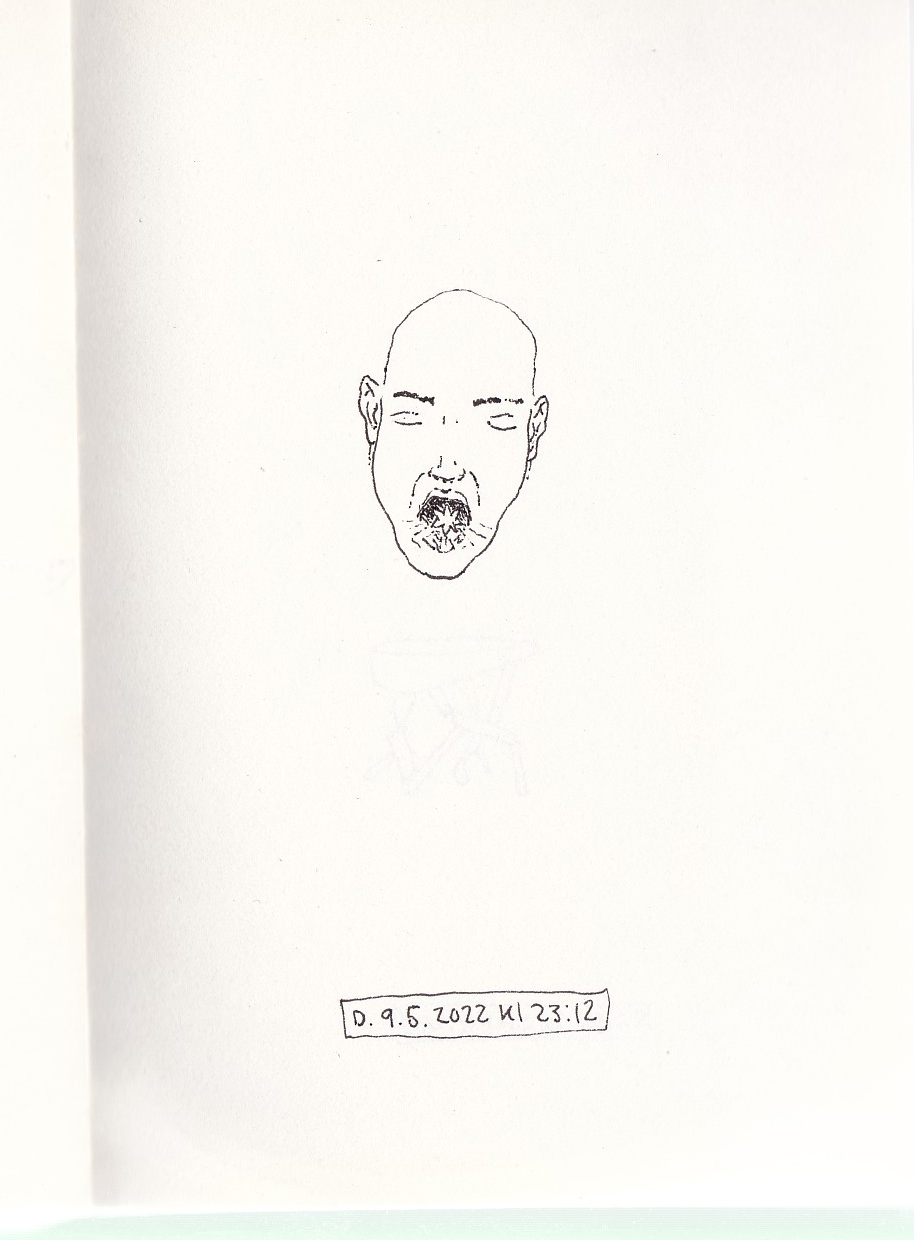 D. 9.5.2022 Kl 23:12